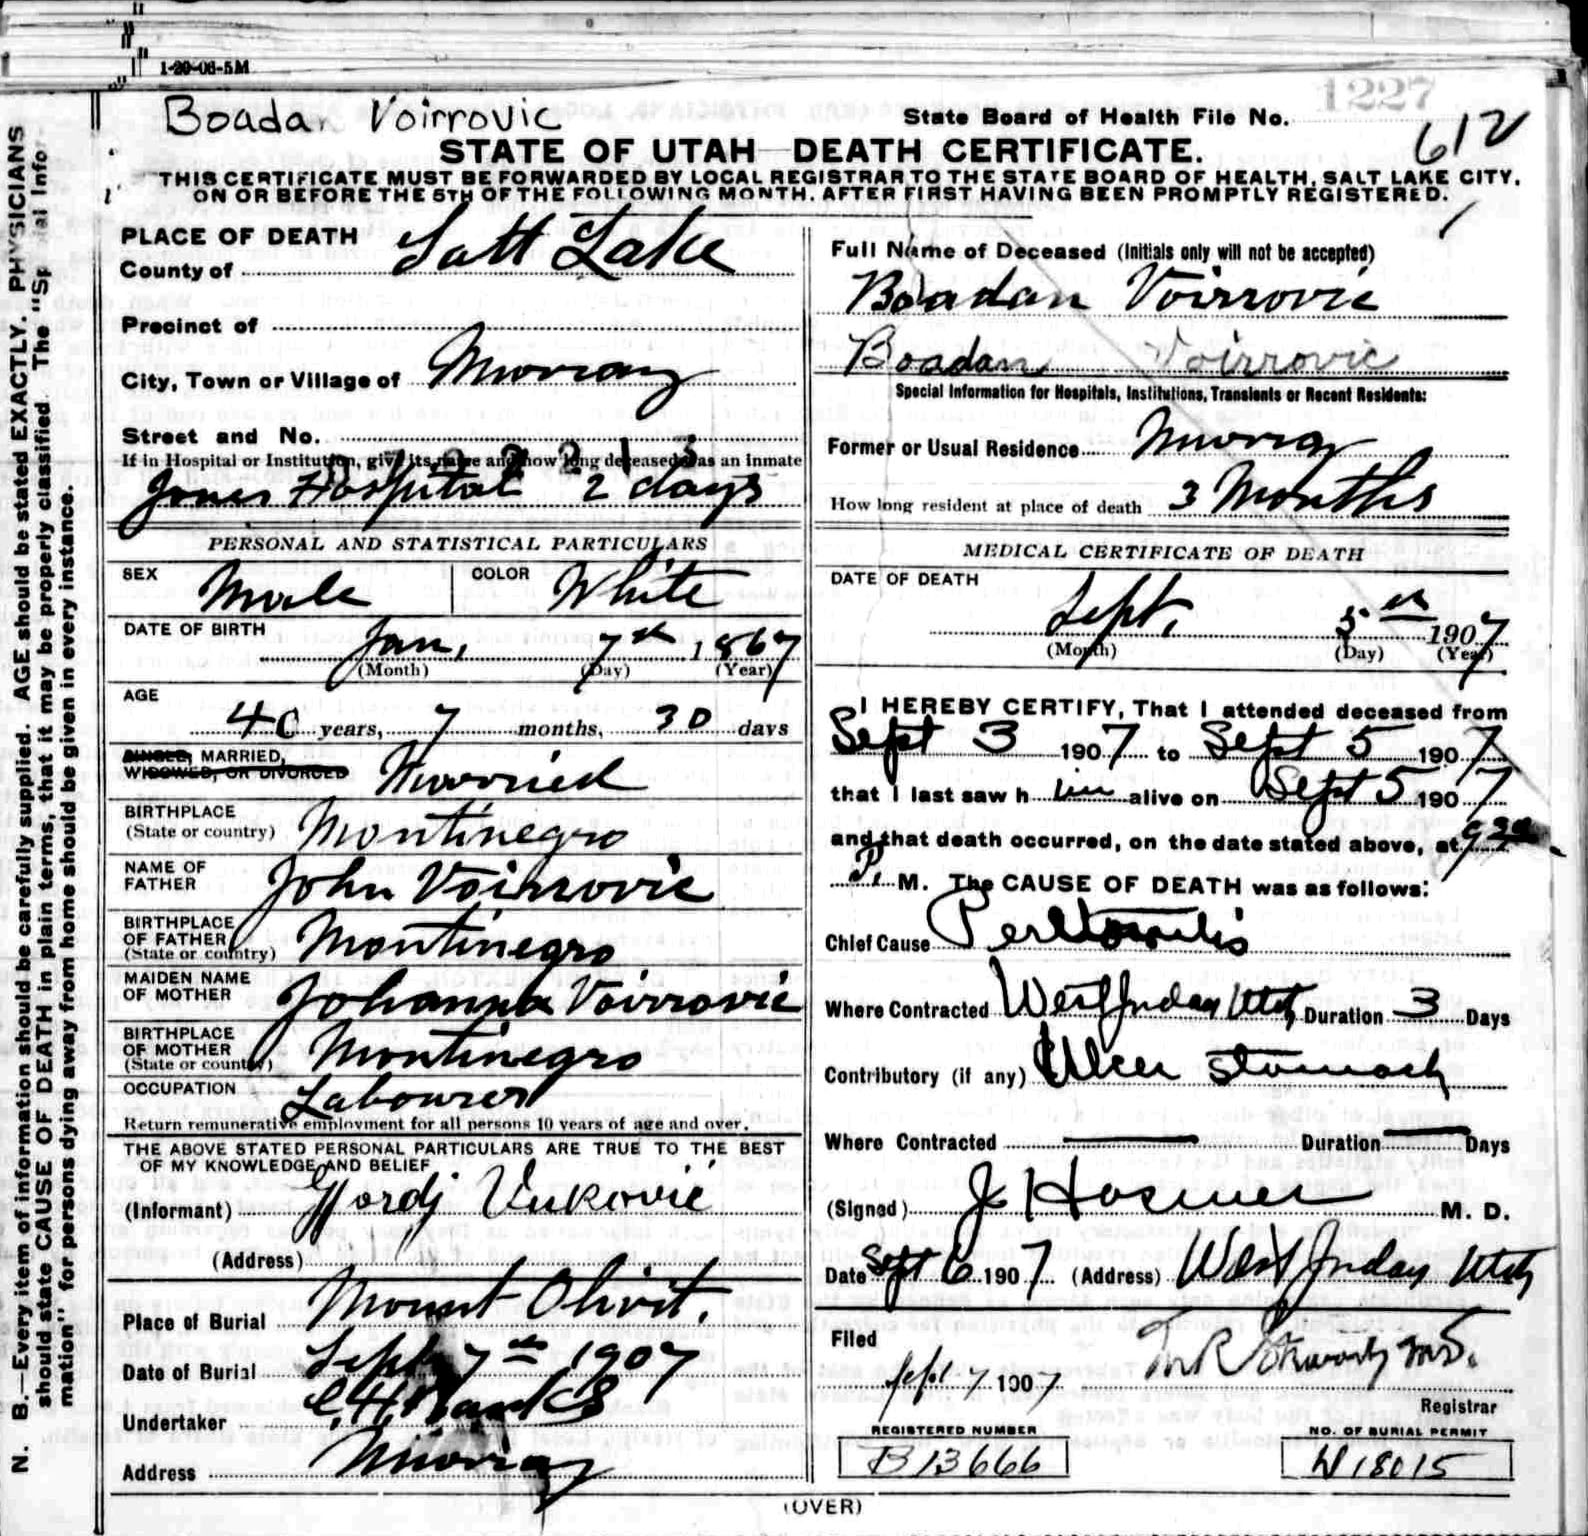 1-20-06-5M
1227
Boadan Voirrovic
State Board of Health File No.
612
STATE OF UTAH—DEATH CERTIFICATE.
THIS CERTIFICATE MUST BE FORWARDED BY LOCAL REGISTRAR TO THE STATE BOARD OF HEALTH, SALT LAKE CITY,
ON OR BEFORE THE 5TH OF THE FOLLOWING MONTH, AFTER FIRST HAVING BEEN PROMPTLY REGISTERED.
N. B.—Every item of information should be carefully supplied. AGE should be stated EXACTLY. PHYSICIANS
should state CAUSE OF DEATH in plain terms, that it may be properly classified The "Special Infor-
mation" for persons dying away from home should be given in every instance.
PLACE OF DEATH
County of Salt Lake
Precinct of
City, Town or Village of Murray
Street and No.
If in Hospital or Institution, give its name and how long deceased was an inmate
Jones Hospital 2 days
PERSONAL AND STATISTICAL PARTICULARS
SEX Male COLOR White
DATE OF BIRTH Jan, 7th 1867
(Month) (Day) (Year)
AGE
40 years, 7 months, 30 days
SINGLE, MARRIED,
WIDOWED, OR DIVORCED Married
BIRTHPLACE
(State or country) Montinegro
NAME OF
FATHER John Voirrovic
BIRTHPLACE
OF FATHER
(State or country) Montinegro
MAIDEN NAME
OF MOTHER Johanna Voirrovic
BIRTHPLACE
OF MOTHER
(State or country) Montinegro
OCCUPATION Labourer
Return remunerative employment for all persons 10 years of age and over.
THE ABOVE STATED PERSONAL PARTICULARS ARE TRUE TO THE BEST
OF MY KNOWLEDGE AND BELIEF
(Informant) Gjordj Vukovic
(Address)
Place of Burial Mount Olivit.
Date of Burial Sept 7th 1907
Undertaker
Address Murray
Full Name of Deceased (Initials only will not be accepted)
Boadan Voirrovic
Boadan Voirrovic
Special Information for Hospitals, Institutions, Transients or Recent Residents:
Former or Usual Residence Murray
How long resident at place of death 3 Months
MEDICAL CERTIFICATE OF DEATH
DATE OF DEATH
Sept, 5th 1907
(Month) (Day) (Year)
I HEREBY CERTIFY, That I attended deceased from
Sept 3 1907 to Sept 5 1907
that I last saw him alive on Sept 5 1907
and that death occurred, on the date stated above, at
P. M. The CAUSE OF DEATH was as follows:
Chief Cause Peritonitis
Where Contracted West Jordan Utah Duration 3 Days
Contributory (if any) Ulcer Stomach
Where Contracted Duration Days
(Signed) J Hosmer M. D.
Date Sept 6 1907 (Address) West Jordan Utah
Filed
Sept 7 1907
Registrar
REGISTERED NUMBER
B13666
NO. OF BURIAL PERMIT
W18015
(OVER)